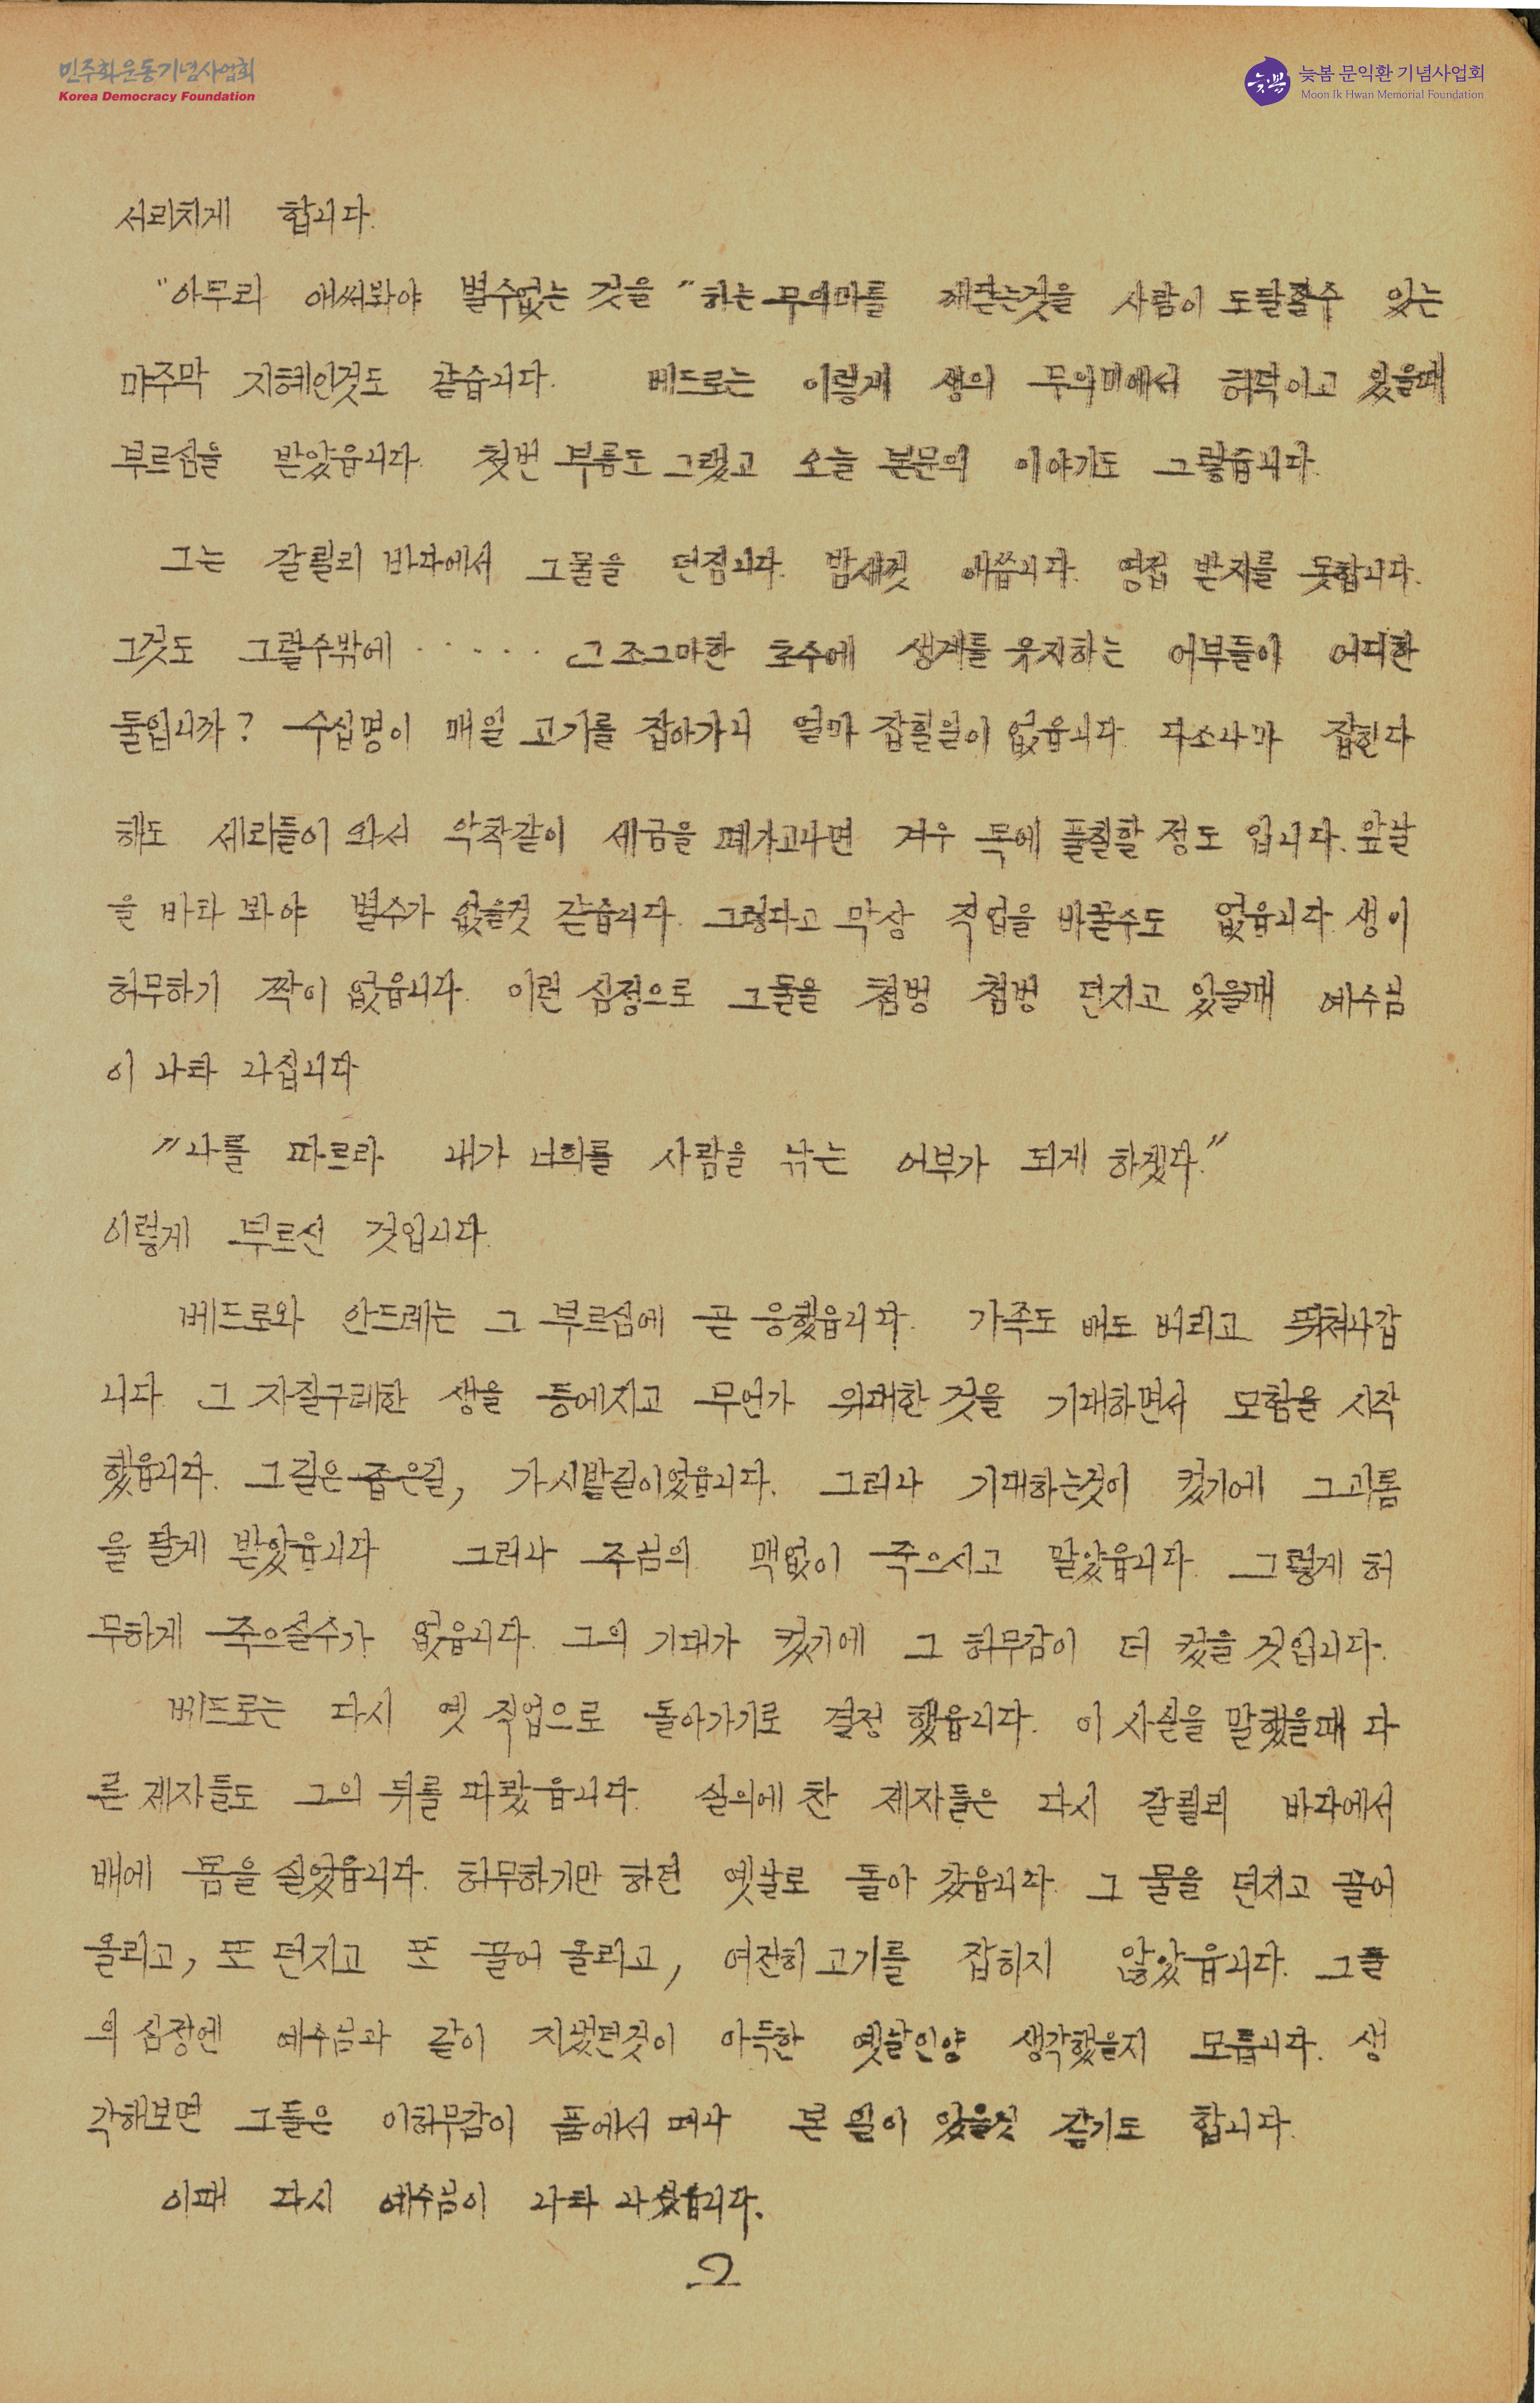 민주화운동기념사업회
Korea Democracy Foundation
늦봄
늦봄 문익환 기념사업회
Moon Ik Hwan Memorial Foundation
서리치게 합니다.
"아무리 애써봐야 별수없는 것을" 하는 무의미를 깨닫는것을 사람이 도달할수 있는
마주막 지혜인것도 같습니다. 베드로는 이렇게 생의 무의미에서 허덕이고 있을때
부르심을 받았읍니다. 첫번 부름도 그랬고 오늘 본문의 이야기도 그렇습니다.
그는 갈릴리 바다에서 그물을 던집니다. 밤새껏 애씁니다. 영접 받지를 못합니다.
그것도 그럴수밖에 ······ 그 조그마한 호수에 생계를 유지하는 어부들이 어디한
둘입니까? 수십명이 매일 고기를 잡아가니 얼마 잡힐일이 없읍니다. 다소나마 잡힌다
해도 세리들이 와서 악착같이 세금을 떼가고나면 겨우 목에 풀칠할 정도 입니다. 앞날
을 바라 봐야 별수가 없을것 같습니다. 그렇다고 막상 직업을 바꿀수도 없읍니다. 생이
허무하기 짝이 없읍니다. 이런 심정으로 그물을 첨벙 첨벙 던지고 있을때 예수님
이 나타 나십니다
"나를 따르라 내가 너희를 사람을 낚는 어부가 되게 하겠다."
이렇게 부르신 것입니다.
베드로와 안드레는 그 부르심에 곧 응했읍니다. 가족도 배도 버리고 뛰쳐나갑
니다. 그 자질구레한 생을 등에지고 무언가 위대한 것을 기대하면서 모험을 시작
했읍니다. 그길은 좁은길, 가시밭길이었읍니다. 그러나 기대하는것이 컸기에 그괴롬
을 달게 받았읍니다 그러나 주님의 맥없이 죽으시고 말았읍니다. 그렇게 허
무하게 죽으실수가 없읍니다. 그의 기대가 컸기에 그 허무감이 더 컸을 것입니다.
베드로는 다시 옛 직업으로 돌아가기로 결정 했읍니다. 이 사실을 말했을때 다
른 제자들도 그의 뒤를 따랐읍니다. 실의에 찬 제자들은 다시 갈릴리 바다에서
배에 몸을 실었읍니다. 허무하기만 하던 옛날로 돌아 갔읍니다. 그 물을 던지고 끌어
올리고, 또 던지고 또 끌어 올리고, 여전히 고기를 잡히지 않았읍니다. 그들
의 심정엔 예수님과 같이 지냈던것이 아득한 옛날인양 생각했을지 모릅니다. 생
각해보면 그들은 이허무감이 품에서 떠나 본 일이 있을것 같기도 합니다.
이때 다시 예수님이 나타 나셨습니다.
2